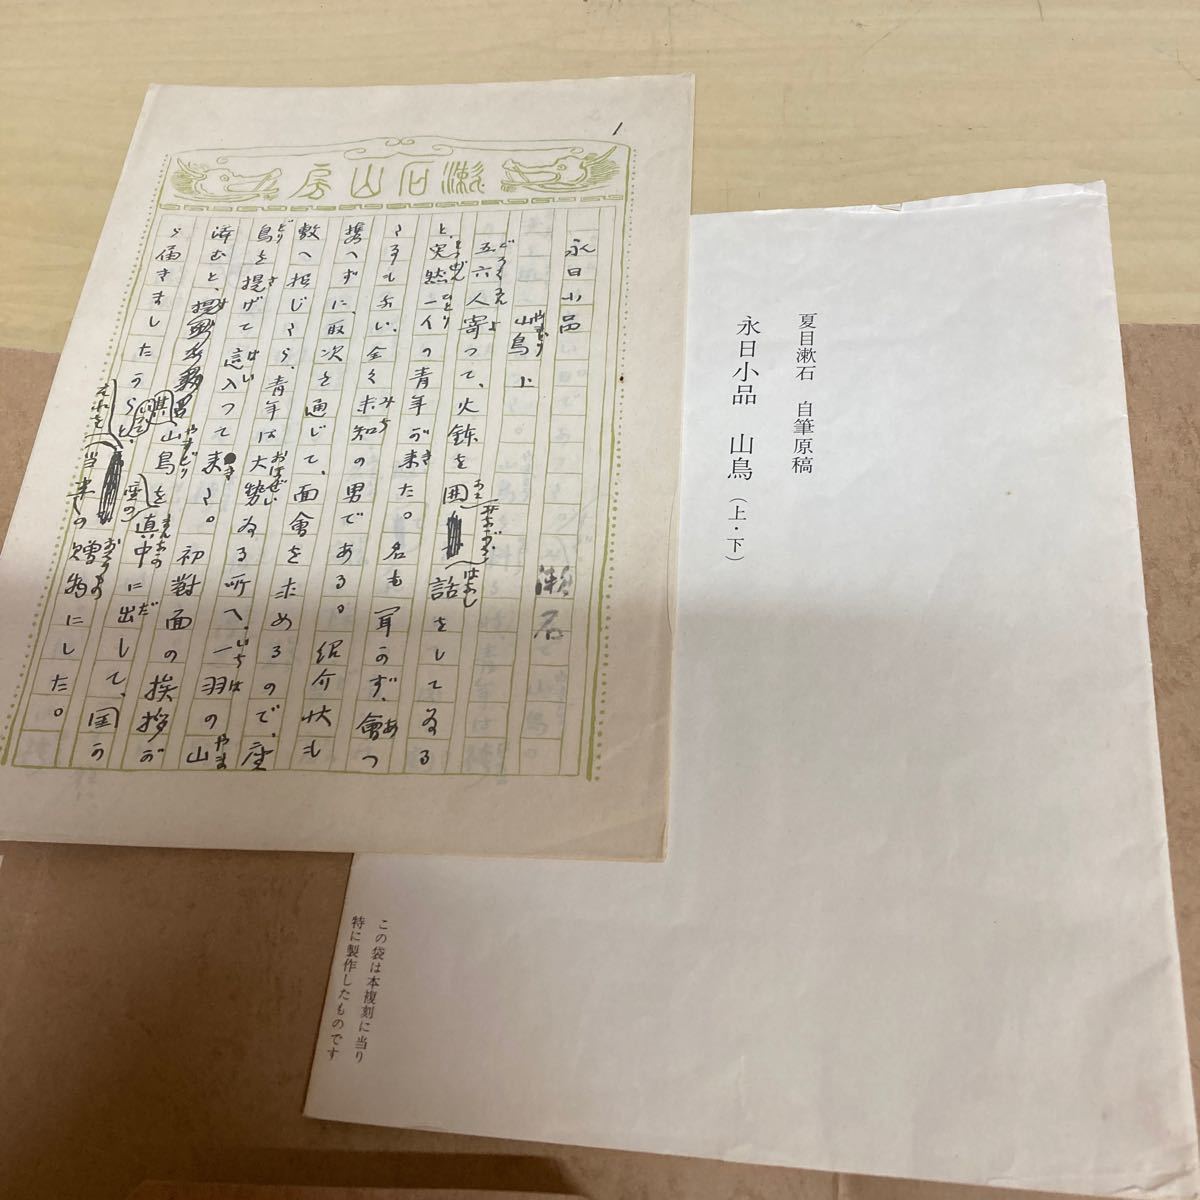 1
漱石山房
永日小品
山鳥 上
漱石
五六人寄つて、火鉢を囲話をしてゐる
と、突然一人の青年が来た。名も聞かず、會つ
た事もない、全く未知の男である。紹介状も
携へずに、取次を通じて、面會を求めるので、座
敷へ招じたら、青年は大勢ゐる所へ、一羽の山
鳥を提げて這入つて来た。初對面の挨拶が
済むと、其山鳥を座の真中に出して、国か
ら届きましたからと、それを当来の贈物にした。
夏目漱石 自筆原稿
永日小品 山鳥(上・下)
この袋は本複刻に当り
特に製作したものです